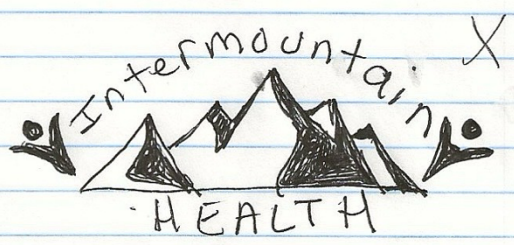 X
Intermountain
HEALTH